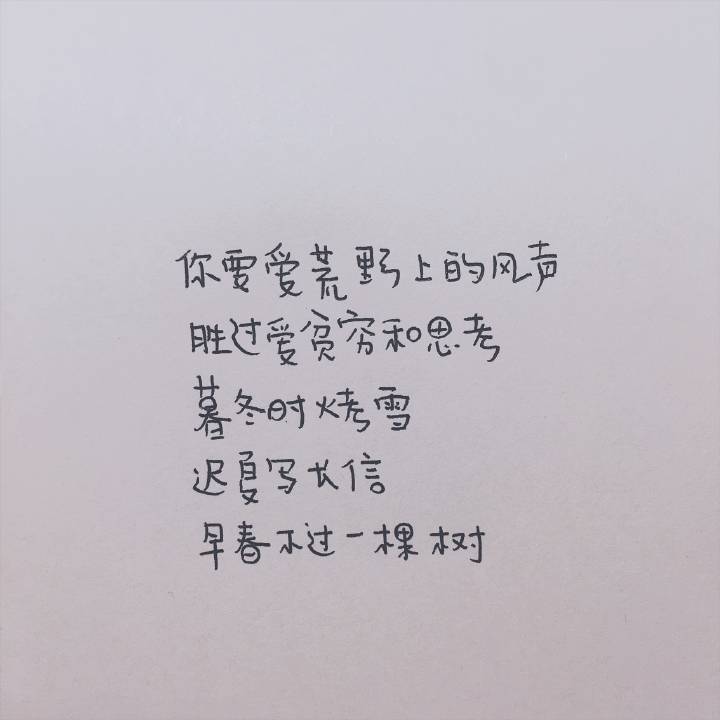 你要爱荒野上的风声
胜过爱贫穷和思考
暮冬时烤雪
迟夏写长信
早春不过一棵树